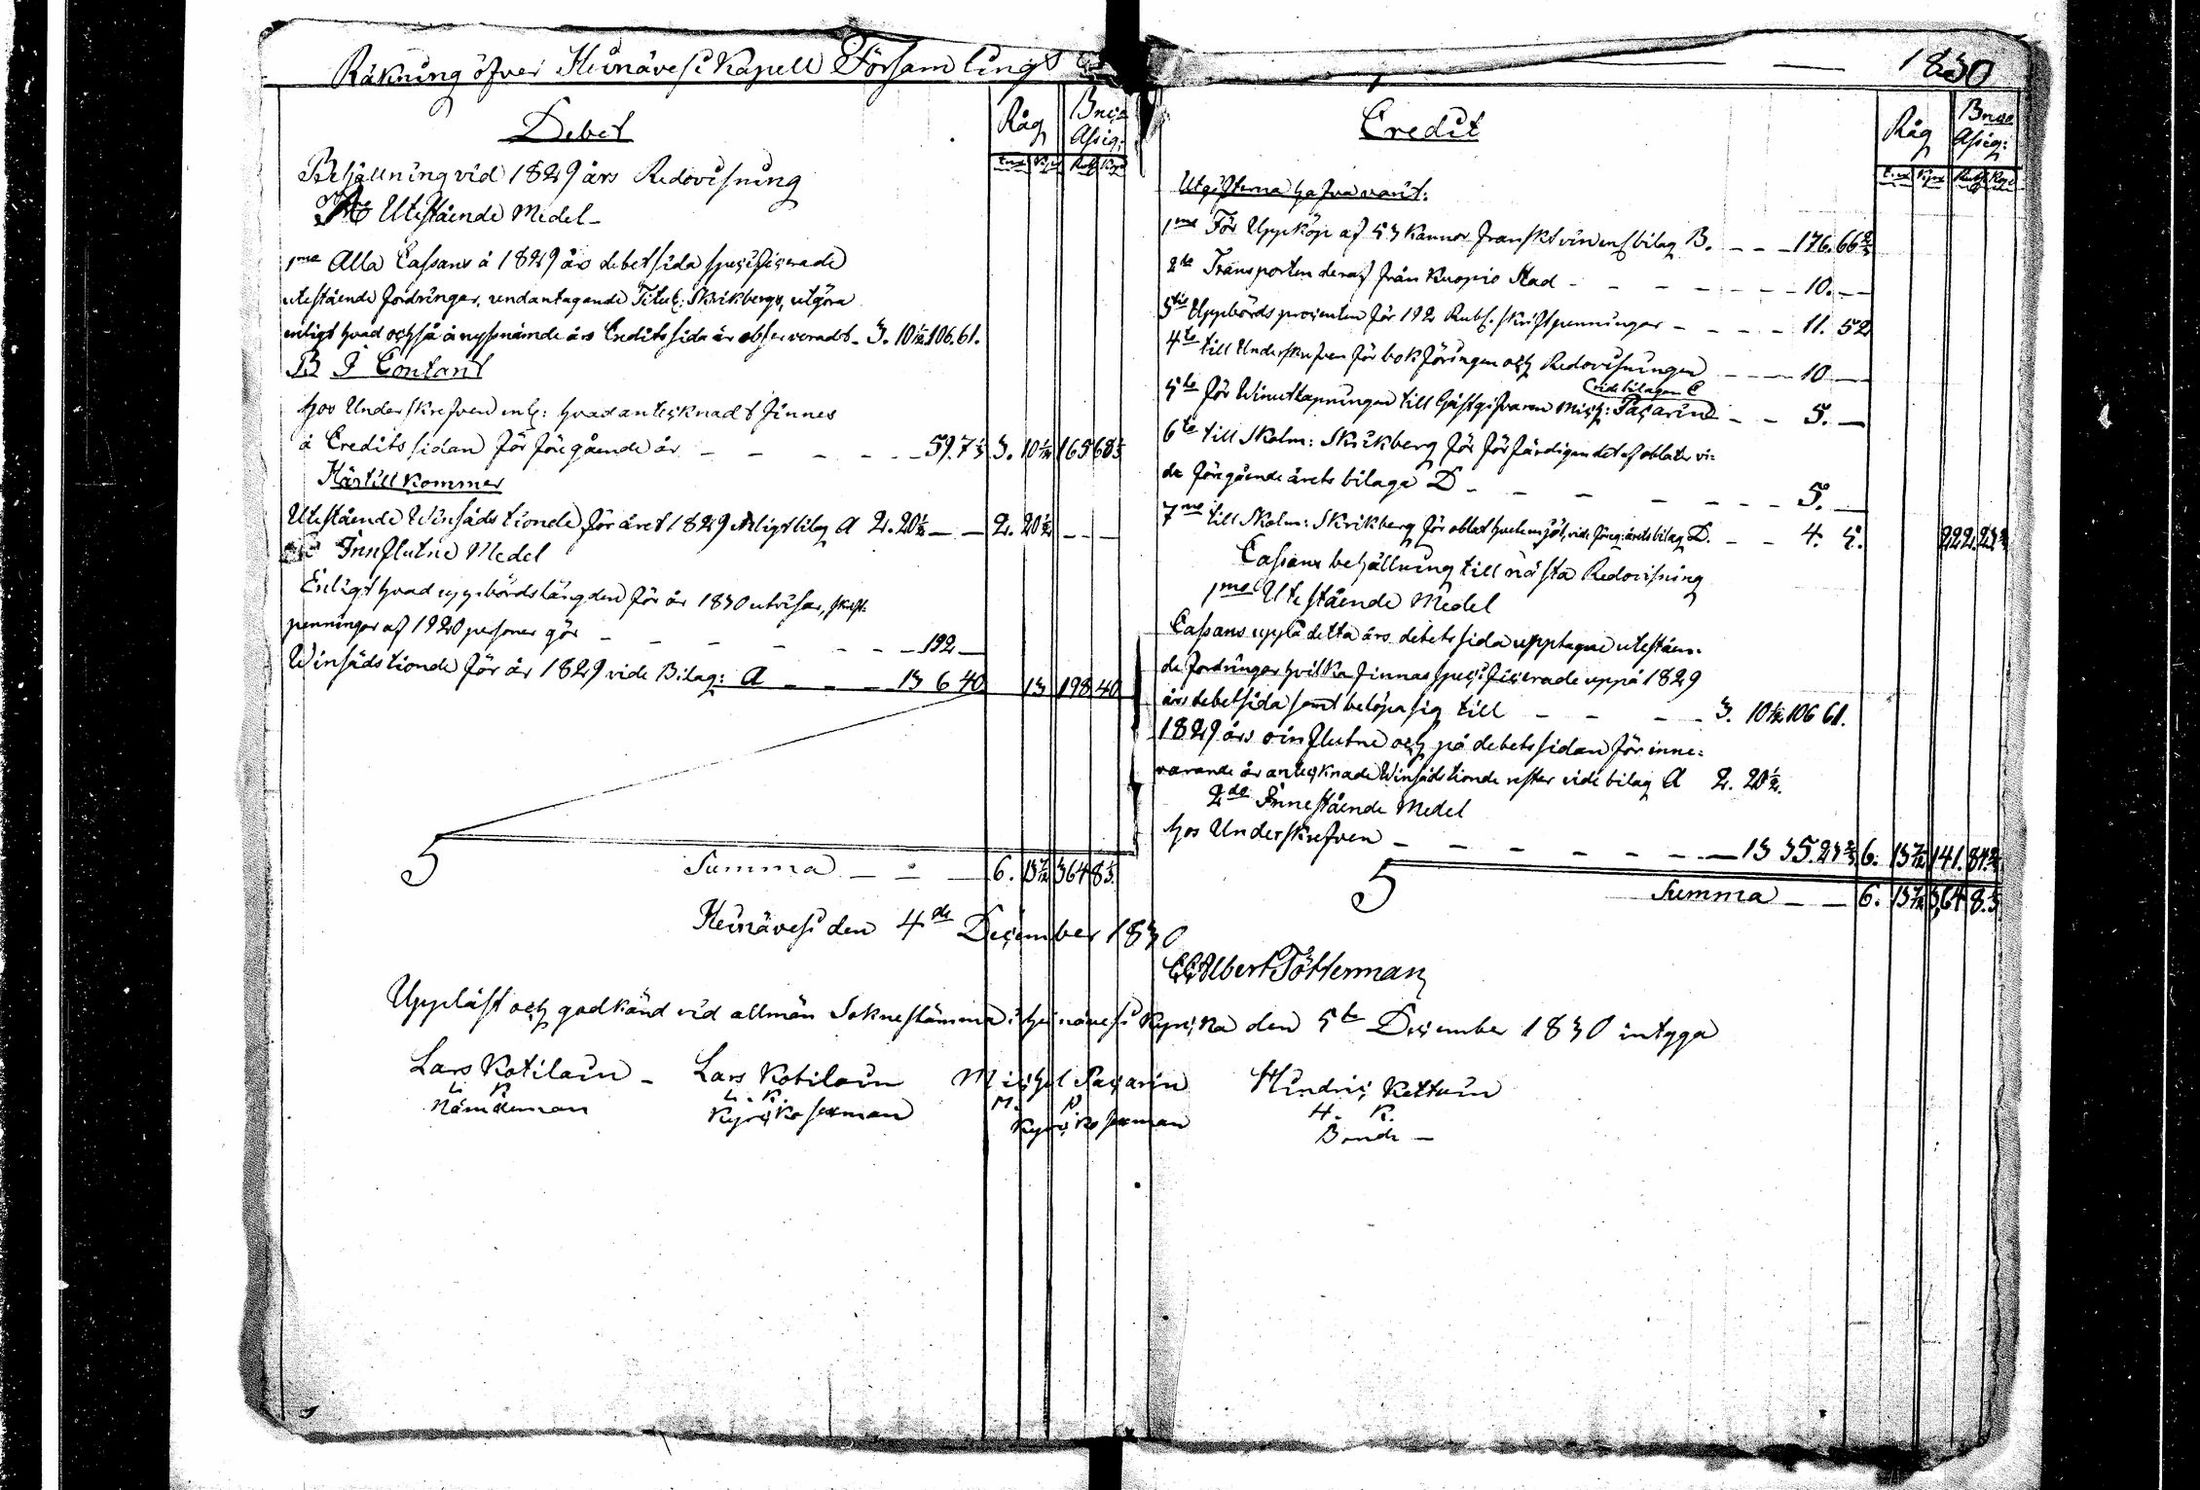 Räkning öfver Heinävesi Kapell Församlings
1830
Debet
Råg
Bnco Assig:
Behållning vid 1829 års Redovisning
Utestående Medel
1mo Alla Cassans å 1829 års debetsida specificerade
utestående fordringar, undantagande Titul: Skrikbergs, utgöra
enligt hvad också å nyssnämde års Credits sida är observeradt - 3. 10½ 106. 61.
B I Contant
hos Underskrefven enl: hvad antecknadt finnes
å Credits sidan för föregående år - - - - - 59. 7⅓ 3. 10½ 165 68⅓
Härtill kommer
Utestående Winsäds tionde för året 1829 enligt bilag A 2. 20½ — — 2. 20½ — —
Innflutne Medel
Enligt hvad uppbördslängden för år 1830 utvisar, skrift-
penningar af 1920 personer gör - - - - - 192 —
Winsäds tionde för år 1829 vide Bilag: A - - - 13 6 40 13 198 40
Summa — — 6. 13½ 364 8⅓
Heinävesi den 4de December 1830
Credit
Råg
Bnco Assig:
Utgifterna hafva varit:
1mo För Uppköp af 53 Kannor franskt vin enl bilag B. - - - 176. 66⅔
2do Transporten deraf från Kuopio Stad - - - - - 10. —
3tio Uppbörds procenten för 192 Rub. skriftpenningar - - - - 11. 52
4to till Underskrefven för bokföringen och Redovisningen - - - 10 —
vide bilagan C
5to för Winutlapningen till Gästgifvaren Mich: Pacarind - - 5. —
6to till Skolm: Skrikberg för förfärdigandet af oblater vi-
de föregående årets bilaga D - - - - - 5. —
7mo till Skolm: Skrikberg för oblat hvetemjöl, vide föreg: årets bilag D. - - 4. 5. 222. 23⅔
Cassans behållning till nästa Redovisning
1mo Utestående Medel
Cassans uppå detta års debetssida upptagne uteståen-
de fordringar hvilka finnas specificerade uppå 1829
års debetsida samt belöpa sig till - - - 3. 10½ 106 61.
1829 års oinflutne och på debetssidan för inne-
varande år antecknade Winsäds tionde rester vide bilag A 2. 20½.
2do Innestående Medel
hos Underskrefven - - - - - - 13 35. 23⅔ 6. 13½ 141. 84⅔
Summa — — 6. 13½ 364 8.⅓
Albert Tötterman
Uppläst och godkänd vid allmän Soknestämma i Heinävesi Kyrcka den 5te December 1830 intyga
Lars Kotilain - Lars Kotilain Michel Pacarin Hindric Kettuin
L. K. L. K. M. P. H. K.
Nämdeman Kyrcko sexman Kyrcko sexman Bonde —